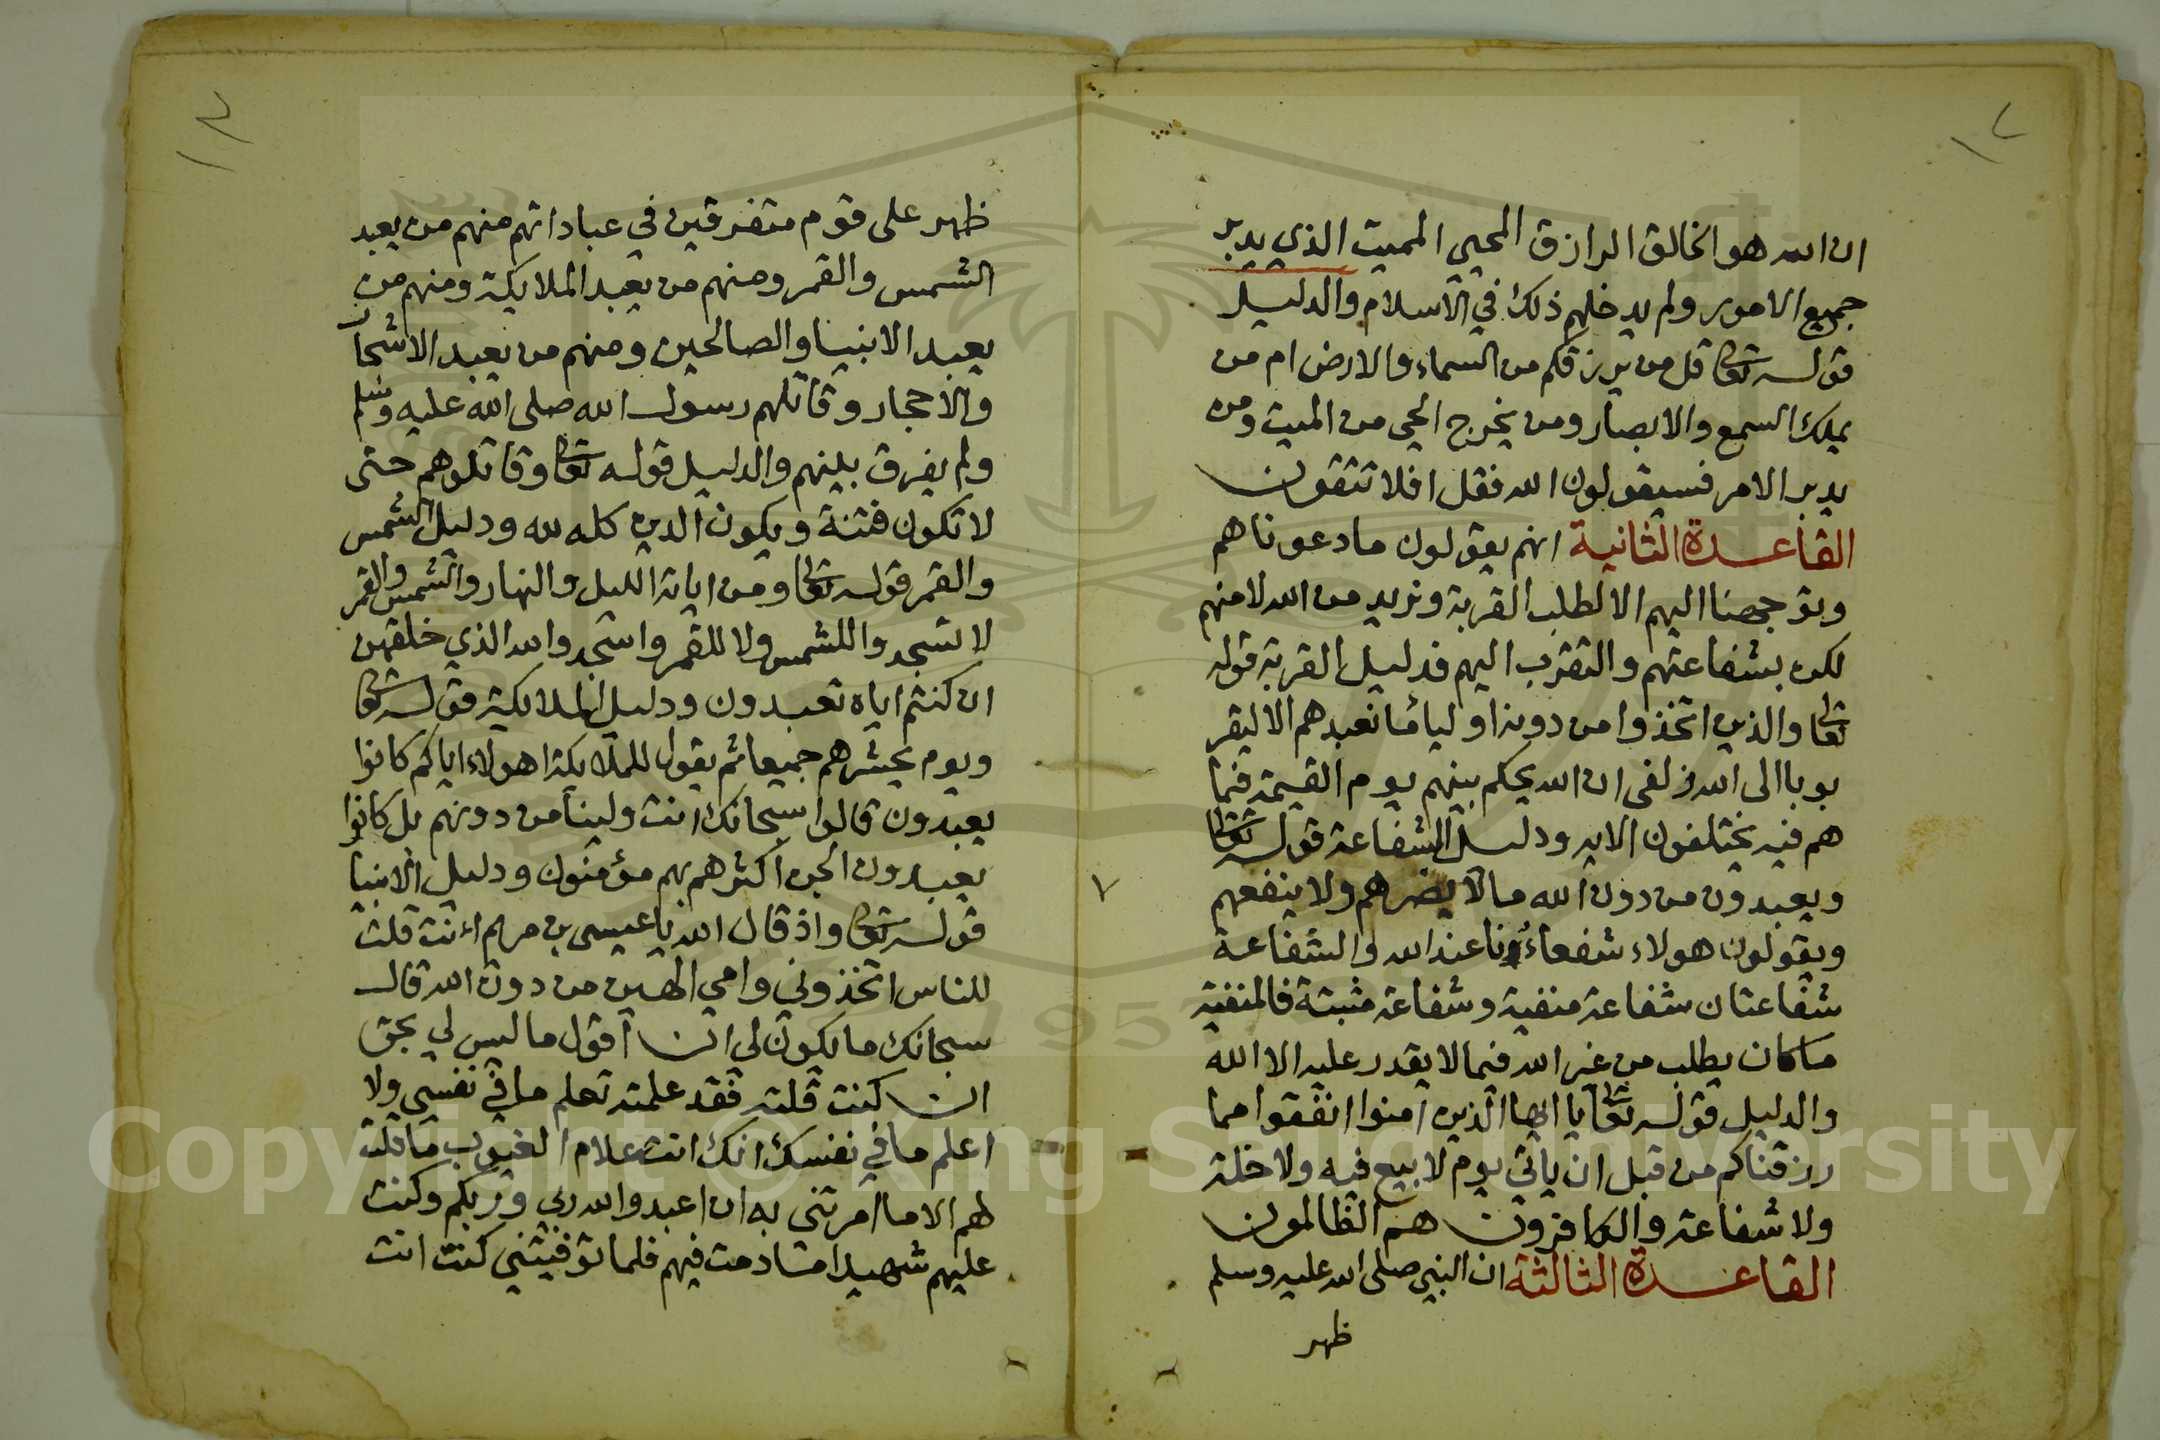 ١٢
ان الله هو الخالق الرازق المحيي المميت الذي يدبر
جميع الامور ولم يدخلهم ذلك في الاسلام والدليل
قوله تعالى قل من يرزقكم من السماء والارض ام من
يملك السمع والابصار ومن يخرج الحي من الميت ومن
يدبر الامر فسيقولون الله فقل افلا تتقون
القاعدة الثانية انهم يقولون ما دعوناهم
وتوجهنا اليهم الا لطلب القربة ونريد من الله لا منهم
لكن بشفاعتهم والتقرب اليهم فدليل القربة قوله
تعالى والذين اتخذوا من دونه اولياء ما نعبدهم الا ليقر
بونا الى الله زلفى ان الله يحكم بينهم يوم القيمة فيما
هم فيه يختلفون الايه ودليل الشفاعة قوله تعالى
ويعبدون من دون الله مالا يضرهم ولا ينفعهم
ويقولون هولاء شفعاءُونا عند الله والشفاعة
شفاعتان شفاعة منفية وشفاعة مثبتة فالمنفية
ما كان يطلب من غير الله فيما لا يقدر عليه الا الله
والدليل قوله تعالى يا ايها الذين آمنوا انفقوا مما
رزقناكم من قبل ان ياتي يوم لا بيع فيه ولا خلة
ولا شفاعة والكافرون هم الظالمون
القاعدة الثالثة ان النبي صلى الله عليه وسلم
ظهر
٧
١٣
ظهر على قوم متفرقين في عباداتهم منهم من يعبد
الشمس والقمر ومنهم من يعبد الملايكة ومنهم من
يعبد الانبيا والصالحين ومنهم من يعبد الاشجار
والاحجار وقاتلهم رسول الله صلى الله عليه وسلم
ولم يفرق بينهم والدليل قوله تعالى وقاتلوهم حتى
لا تكون فتنة ويكون الدين كله لله ودليل الشمس
والقمر قوله تعالى ومن اياته الليل والنهار والشمس والقمر
لا تسجدوا للشمس ولا للقمر واسجدوا لله الذي خلقهن
ان كنتم اياه تعبدون ودليل الملايكة قوله تعالى
ويوم يحشرهم جميعا ثم يقول للملايكة اهولاء اياكم كانوا
يعبدون قالوا سبحانك انت ولينا من دونهم بل كانوا
يعبدون الجن اكثرهم بهم مؤمنون ودليل الانبيا
قوله تعالى واذ قال الله يا عيسى بن مريم اءنت قلت
للناس اتخذوني وامي الهين من دون الله قال
سبحانك ما يكون لي ان اقول ما ليس لي بحق
ان كنت قلته فقد علمته تعلم ما في نفسي ولا
اعلم ما في نفسك انك انت علام الغيوب ما قلت
لهم الا ما امرتني به ان اعبدوا الله ربي وربكم وكنت
عليهم شهيدا ما دمت فيهم فلما توفيتني كنت انت
Copyright © King Saud University
1957